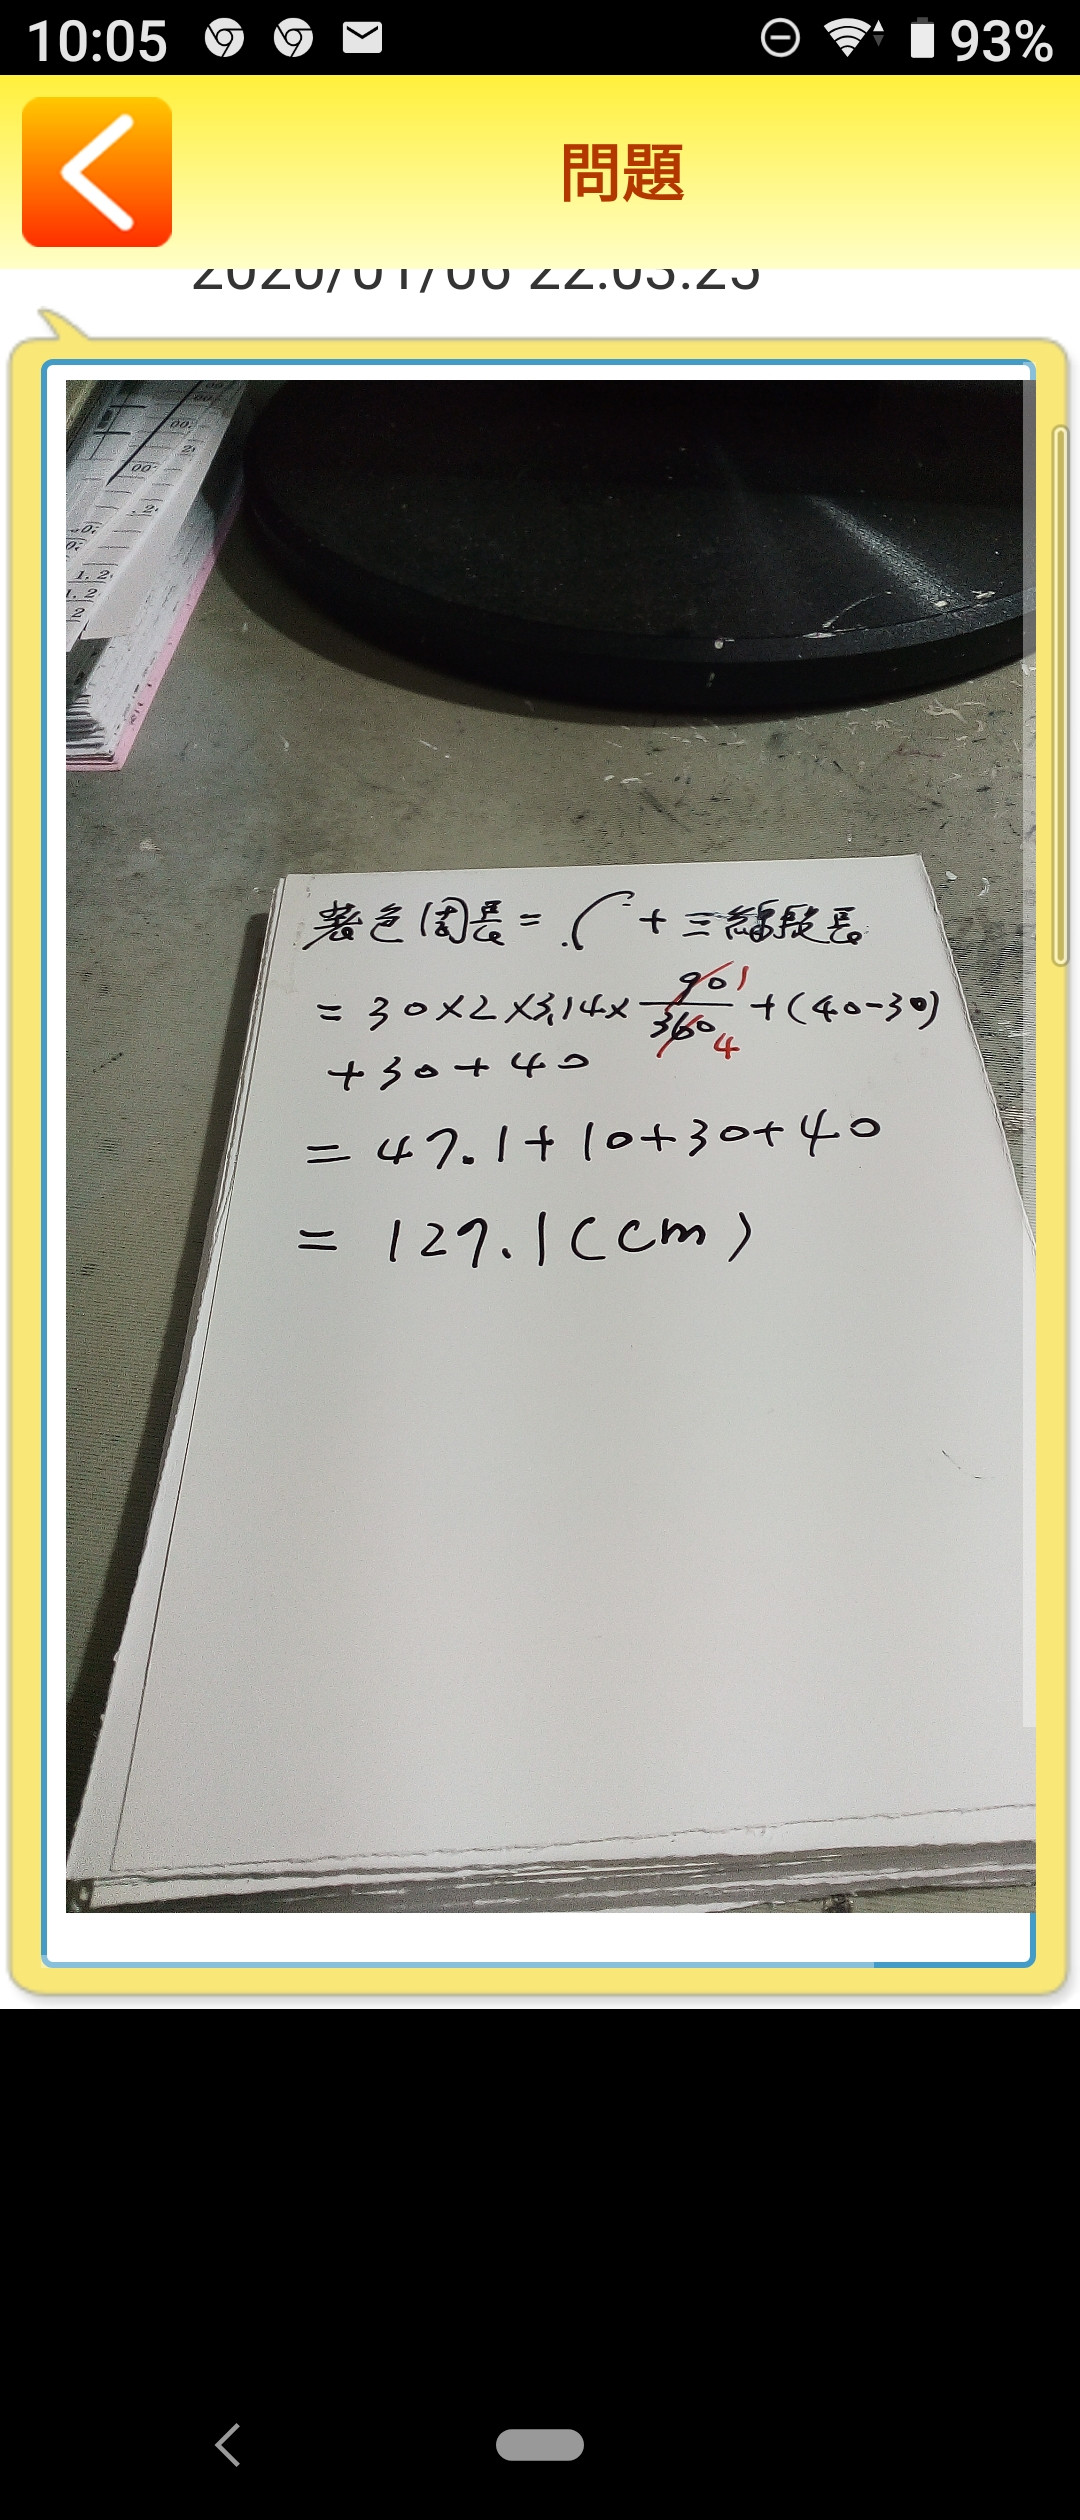 10:05 93%
問題
2020/01/06 22:03:25
著色周長= + 三線段長
= 30×2×3.14× 90/360 1 4 +(40-30)
+30+40
= 47.1+10+30+40
= 127.1(cm)